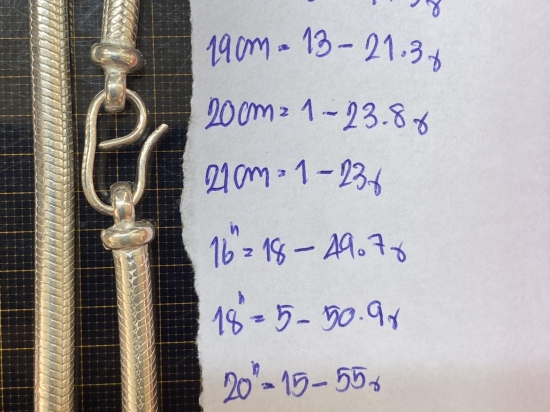 19cm = 13 - 21.3g
20cm = 1 - 23.8g
21cm = 1 - 23g
16" = 18 - 49.7g
18" = 5 - 50.9g
20" = 15 - 55g